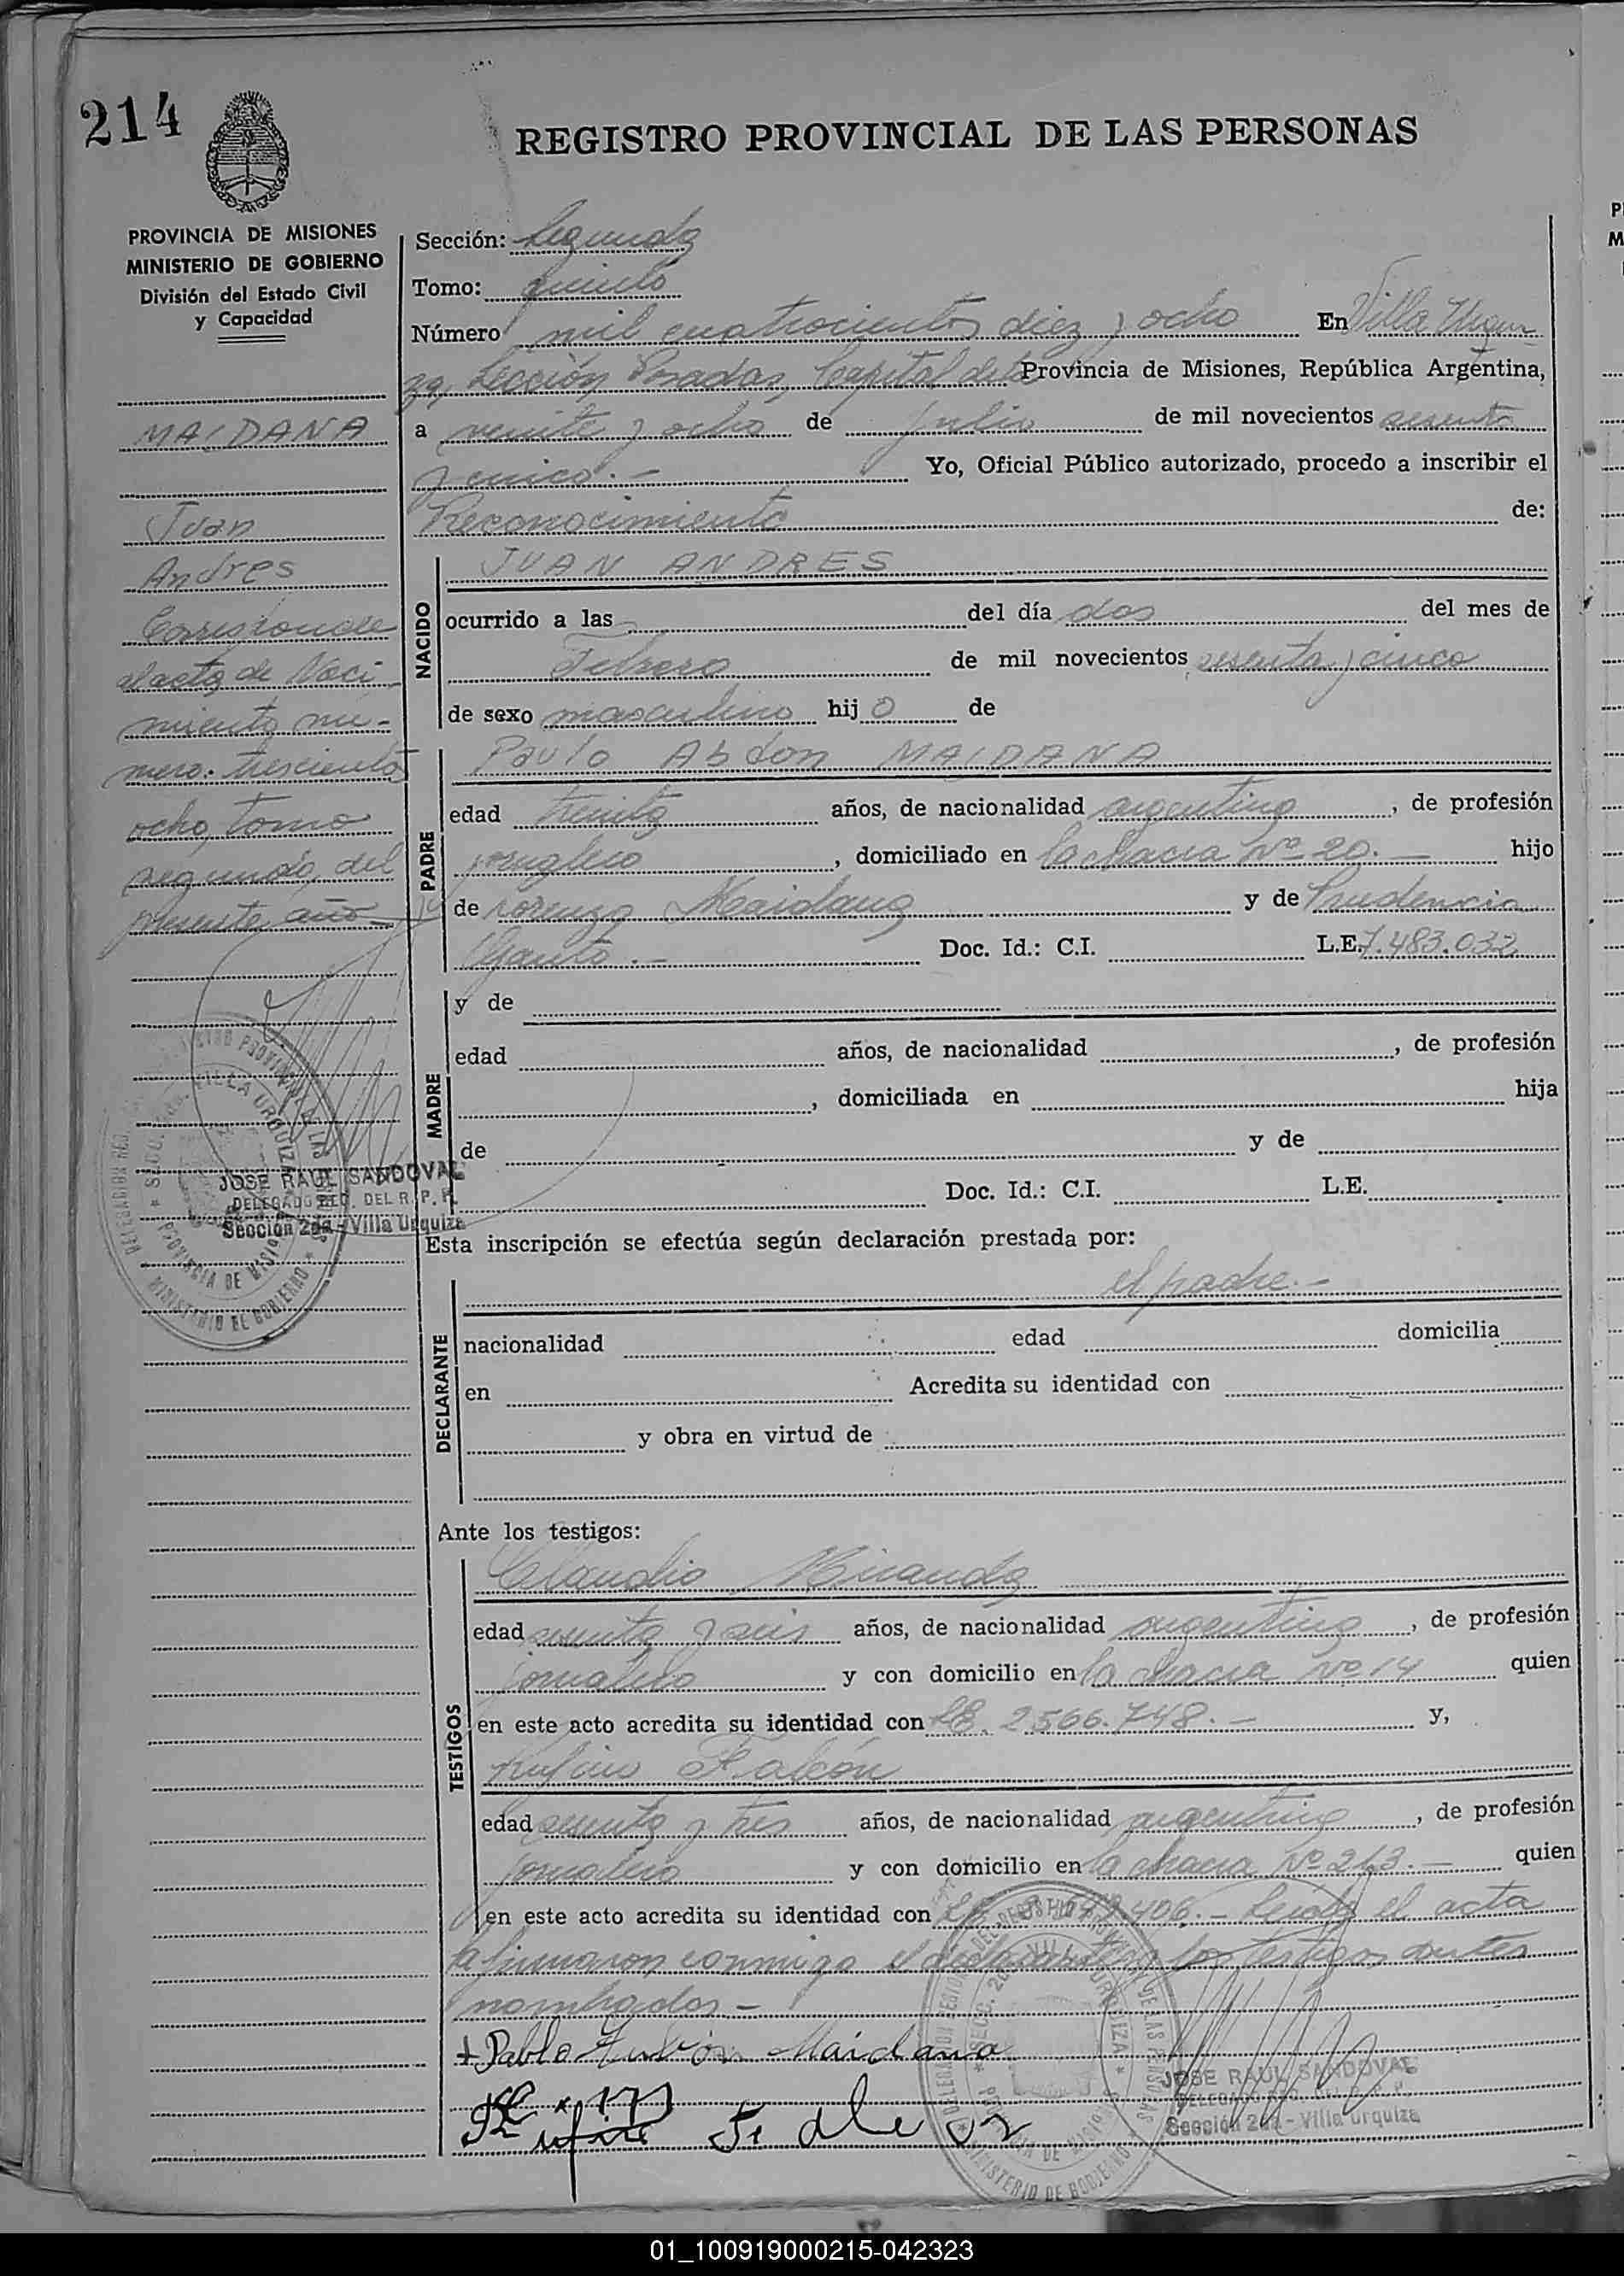 214
REGISTRO PROVINCIAL DE LAS PERSONAS
PROVINCIA DE MISIONES
MINISTERIO DE GOBIERNO
División del Estado Civil
y Capacidad
MAIDANA
Juan
Andres
Corresponde
al acta de Naci
miento nu-
mero: trescientos
ocho, tomo
segundo, del
presente año
JOSE RAUL SANDOVAL
DELEGADO DEL R. P. P.
Sección 2da - Villa Urquiza
Sección: Segunda
Tomo: quinto
Número mil cuatrocientos diez y ocho En Villa Urqui
za, Sección Posadas, Capital de la Provincia de Misiones, República Argentina,
a veinte y ocho de julio de mil novecientos sesenta
y cinco.- Yo, Oficial Público autorizado, procedo a inscribir el
Reconocimiento de:
NACIDO
JUAN ANDRES
ocurrido a las del día dos del mes de
Febrero de mil novecientos sesenta y cinco
de sexo masculino hijo de
PADRE
Pavlo Abdon MAIDANA
edad treinta años, de nacionalidad argentina, de profesión
jornalero, domiciliado en la chacra Nº 20.- hijo
de Lorenzo Maidana y de Prudencia
Doc. Id.: C.I. L.E. 7.483.032
MADRE
y de
edad años, de nacionalidad , de profesión
, domiciliada en hija
de y de
Doc. Id.: C.I. L.E.
Esta inscripción se efectúa según declaración prestada por:
DECLARANTE
el padre.-
nacionalidad edad domicilia
en Acredita su identidad con
y obra en virtud de
Ante los testigos:
TESTIGOS
Claudio Miranda
edad y seis años, de nacionalidad argentina, de profesión
jornalero y con domicilio en la chacra Nº 14 quien
en este acto acredita su identidad con LE. 2566.748.- y,
Rufino Falcón
edad sesenta y tres años, de nacionalidad argentina, de profesión
jornalero y con domicilio en la chacra Nº 213.- quien
en este acto acredita su identidad con .406.- Leída el acta
la firmaron conmigo el declarante y los testigos antes
nombrados-
Pablo Maidana
JOSE RAUL SANDOVAL
DELEGADO DEL R. P. P.
Sección 2da - Villa Urquiza
01_100919000215-042323